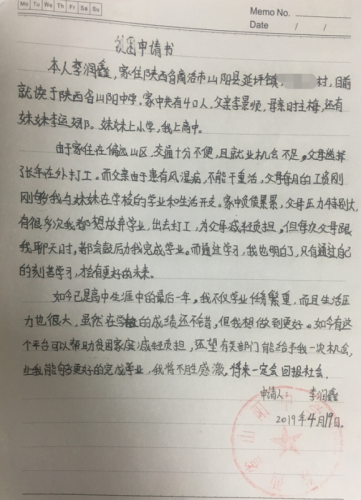 Mo Tu We Th Fr Sa Su
Memo No.
Date / /
贫困申请书
本人李润鑫，家住陕西省商洛市山阳县延坪镇 村，目前
就读于陕西省山阳中学。家中共有4口人，父亲李景顺，母亲时主梅，还有
妹妹李运。妹妹上小学，我上高中。
由于家住在偏远山区，交通十分不便，且就业机会不足。父母选择
张年在外打工。而父亲由于患有风湿病，不能干重活，父母每月的工资刚
刚够我与妹妹在学校的学业和生活开支。家中负债累累，父母压力特别大，
有很多次我都想放弃学业，出去打工，为父母减轻负担。但每次父母跟
我聊天时，都鼓励我完成学业。而通过学习，我也明白了，只有通过自己
的刻苦学习，才会有更好的未来。
如今已是高中生涯中的最后一年。我不仅学业任务繁重，而且生活压
力也很大，虽然在学校的成绩还不错，但我想做到更好。如今有这
个平台可以帮助贫困家庭减轻负担，还望有关部门能给予我一次机会，
让我能够更好的完成学业，我将不胜感激，将来一定会回报社会。
申请人：李润鑫
2019年4月19日。